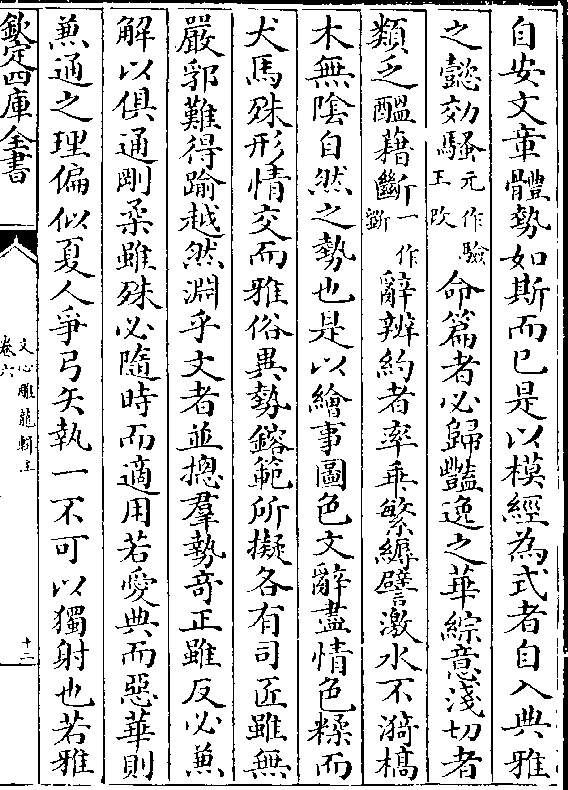 自安文章體勢如斯而已是以模經為式者自入典雅
之懿効騷元作驗王改命篇者必歸豔逸之華綜意淺切者
類乏醞藉斷一作斵辭辨約者率乖繁縟譬激水不漪槁
木無陰自然之勢也是以繪事圖色文辭盡情色糅而
犬馬殊形情交而雅俗異勢鎔範所擬各有司匠雖無
嚴郛難得踰越然淵乎文者並揔羣勢奇正雖反必兼
解以俱通剛柔雖殊必隨時而適用若愛典而惡華則
兼通之理偏似夏人爭弓矢執一不可以獨射也若雅
欽定四庫全書
文心雕龍輯註
卷六
十二